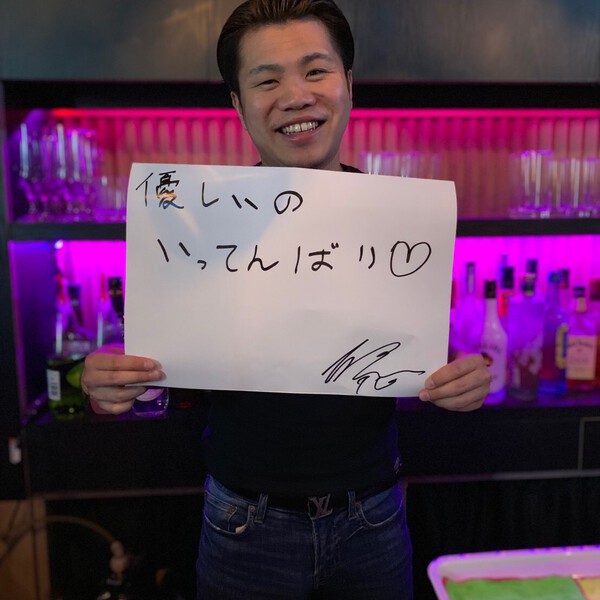 優しいの
いってんばり♡